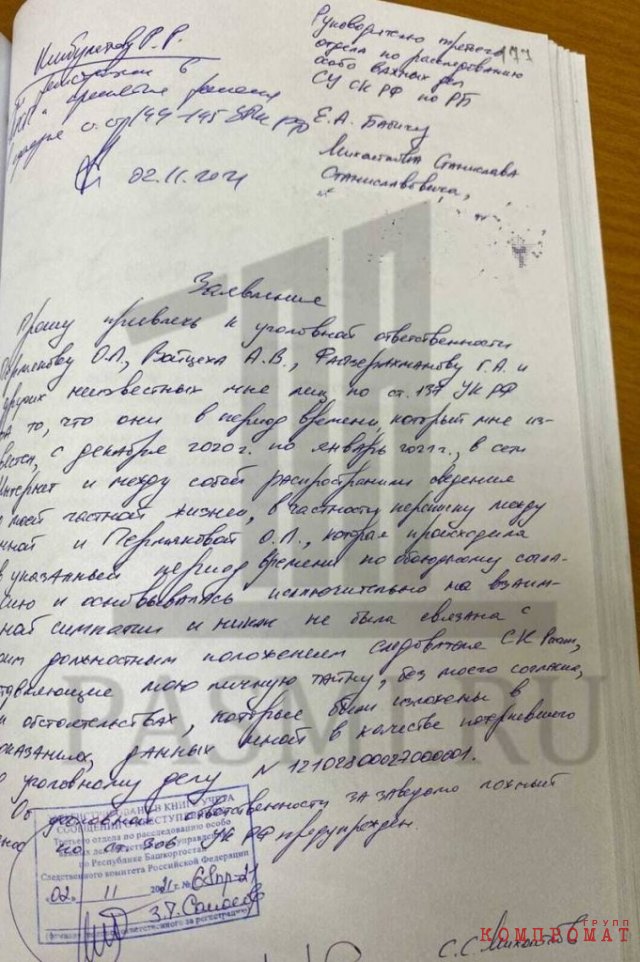 Руководителю третьего 177
отдела по расследованию
особо важных дел
СУ СК РФ по РБ
Е.А. Бабичу
Станислава
Станиславовича,
в
принятие решения
ст.ст. 144-145 УПК РФ
02.11.2021
Заявление
Прошу привлечь к уголовной ответственности
О.Л., Войцеха А.В., Файзерахманову Г.А. и
других неизвестных мне лиц по ст. 137 УК РФ
за то, что они в период времени, который мне из-
вестен, с декабря 2020г. по январь 2021г., в сети
Интернет и между собой распространили сведения
о моей частной жизни, в частности переписку между
мной и Пермяковой О.Л., которая происходила
в указанный период времени по обоюдному согла-
сию и основывалась исключительно на взаим-
ной симпатии и никак не была связана с
моим должностным положением следователя СК России,
составляющие мою личную тайну, без моего согласия,
при обстоятельствах, которые были изложены в
показаниях, данных мной в качестве потерпевшего
по уголовному делу N 12102800027000001.
Об уголовной ответственности за заведомо ложный
донос по ст. 306 УК РФ предупрежден.
ЗАРЕГИСТРИРОВАНО В КНИГЕ УЧЕТА
СООБЩЕНИЙ О ПРЕСТУПЛЕНИЯХ
Третьего отдела по расследованию особо
важных дел следственного управления
по Республике Башкортостан
Следственного комитета Российской Федерации
«02» 11 2021 г. № 68пр-21
(фамилия ответственного за регистрацию)
С.С.
PASMI.RU
ГРУПП
КОМПРОМАТ